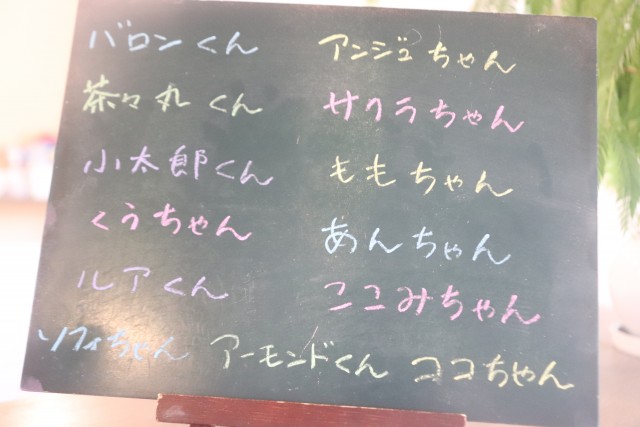 バロンくん アンジュちゃん
茶々丸くん サクラちゃん
小太郎くん ももちゃん
くうちゃん あんちゃん
ルアくん ここみちゃん
ソフィちゃん アーモンドくん ココちゃん